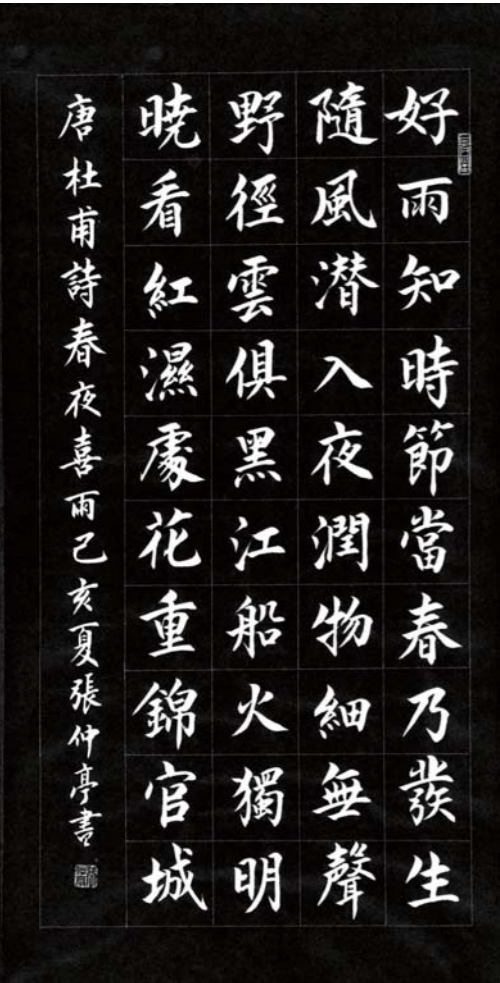 好雨知時節當春乃發生
隨風潜入夜潤物細無聲
野徑雲俱黑江船火獨明
曉看紅濕處花重錦官城
唐杜甫詩春夜喜雨己亥夏張仲亭書